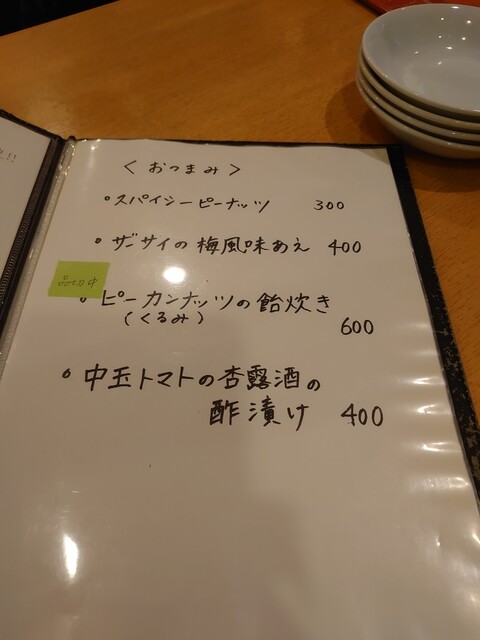 !!
< おつまみ >
・スパイシーピーナッツ 300
・ザーサイの梅風味あえ 400
品切中
・ピーカンナッツの飴炊き
(くるみ)
600
・中玉トマトの杏露酒の
酢漬け 400